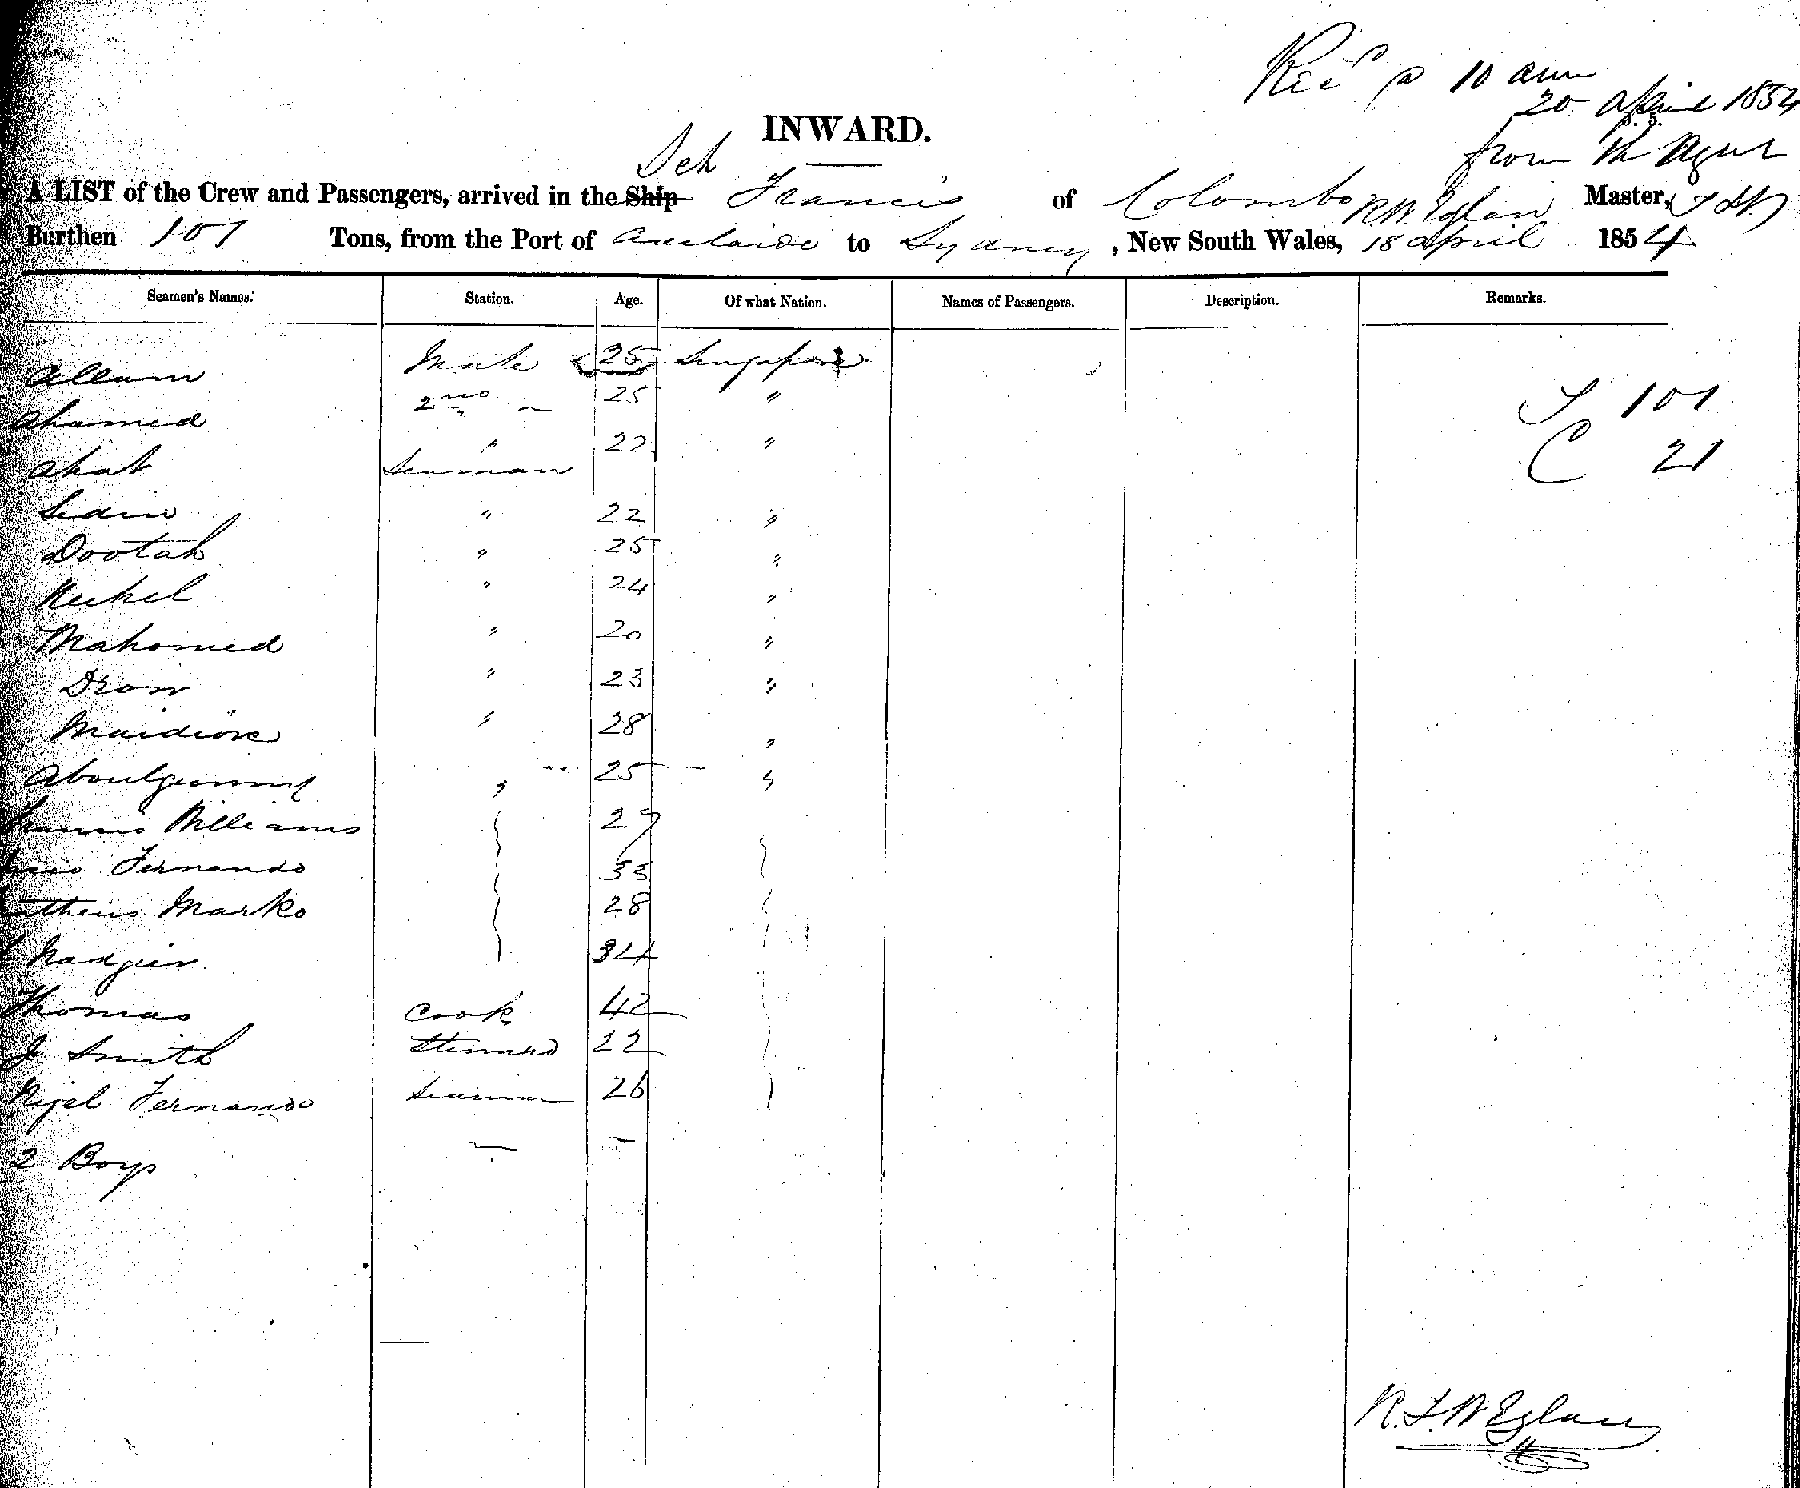 Recd @ 10 am
20 April 1854
from the Agent
INWARD.
Sch
A LIST of the Crew and Passengers, arrived in the Ship Francis of Colombo R W Eglan Master,
Burthen 101 Tons, from the Port of Adelaide to Sydney, New South Wales, 18 April 1854
Seamen's Names. Station. Age. Of what Nation. Names of Passengers. Description. Remarks.
Allum Mate 25 Singapore
Ahamed 2nd " 25 "
T 101
Ahat Seaman 27 "
C 21
Sedin " 22 "
Dootah " 25 "
" 24 "
Mahomed " 20 "
Dron " 23 "
" 28 "
" 25 "
Williams 27
Fernando 33
Marko 28
34
Thomas Cook 42
J Smith Steward 22
Nigel Fernando Seaman 26
2 Boys — —
R. F. W Eglan